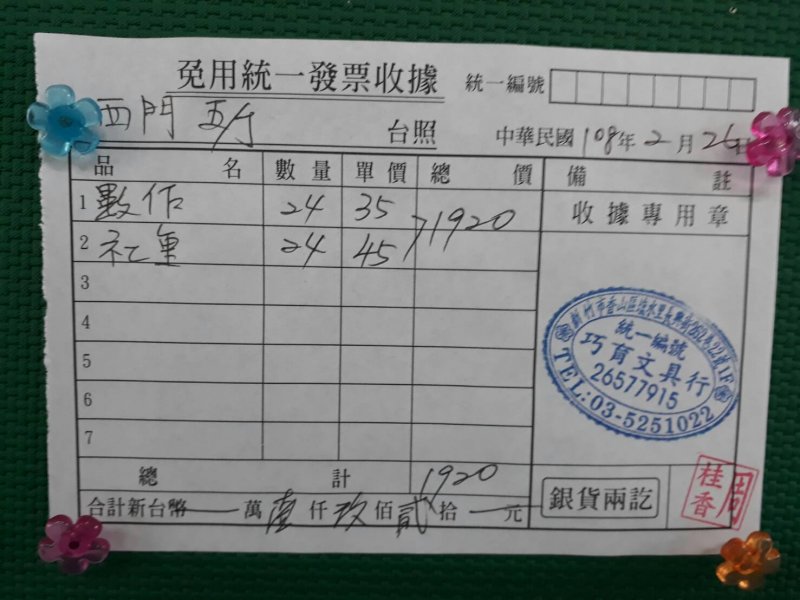 免用統一發票收據 統一編號
西門 台照 中華民國108年2月26日
品名 數量 單價 總價 備註
1 數作 24 35 1920 收據專用章
2 社重 24 45
3
4
5
6
7
新竹市香山區埔水里長興街252巷22號1F
統一編號
巧育文具行
26577915
TEL:03-5251022
總計 1920
合計新台幣 萬壹仟玖佰貳拾 元 銀貨兩訖
周桂香